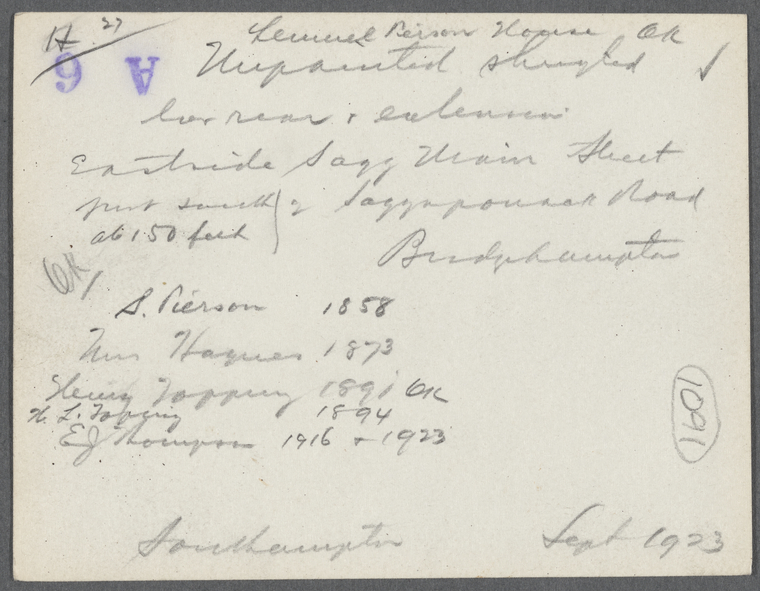 H 27
Lemuel Pierson House OK
A 6
Unpainted shingled
low rear & extension
Eastside Sagg Main Street
just south of Saggaponack Road
ab 150 feet
Bridgehampton
OK
S. Pierson 1858
Mrs Haynes 1873
Henry Topping 1891 OK
H. L. Topping 1894
E J Thompson 1916 & 1923
1091
Southampton Sept 1923